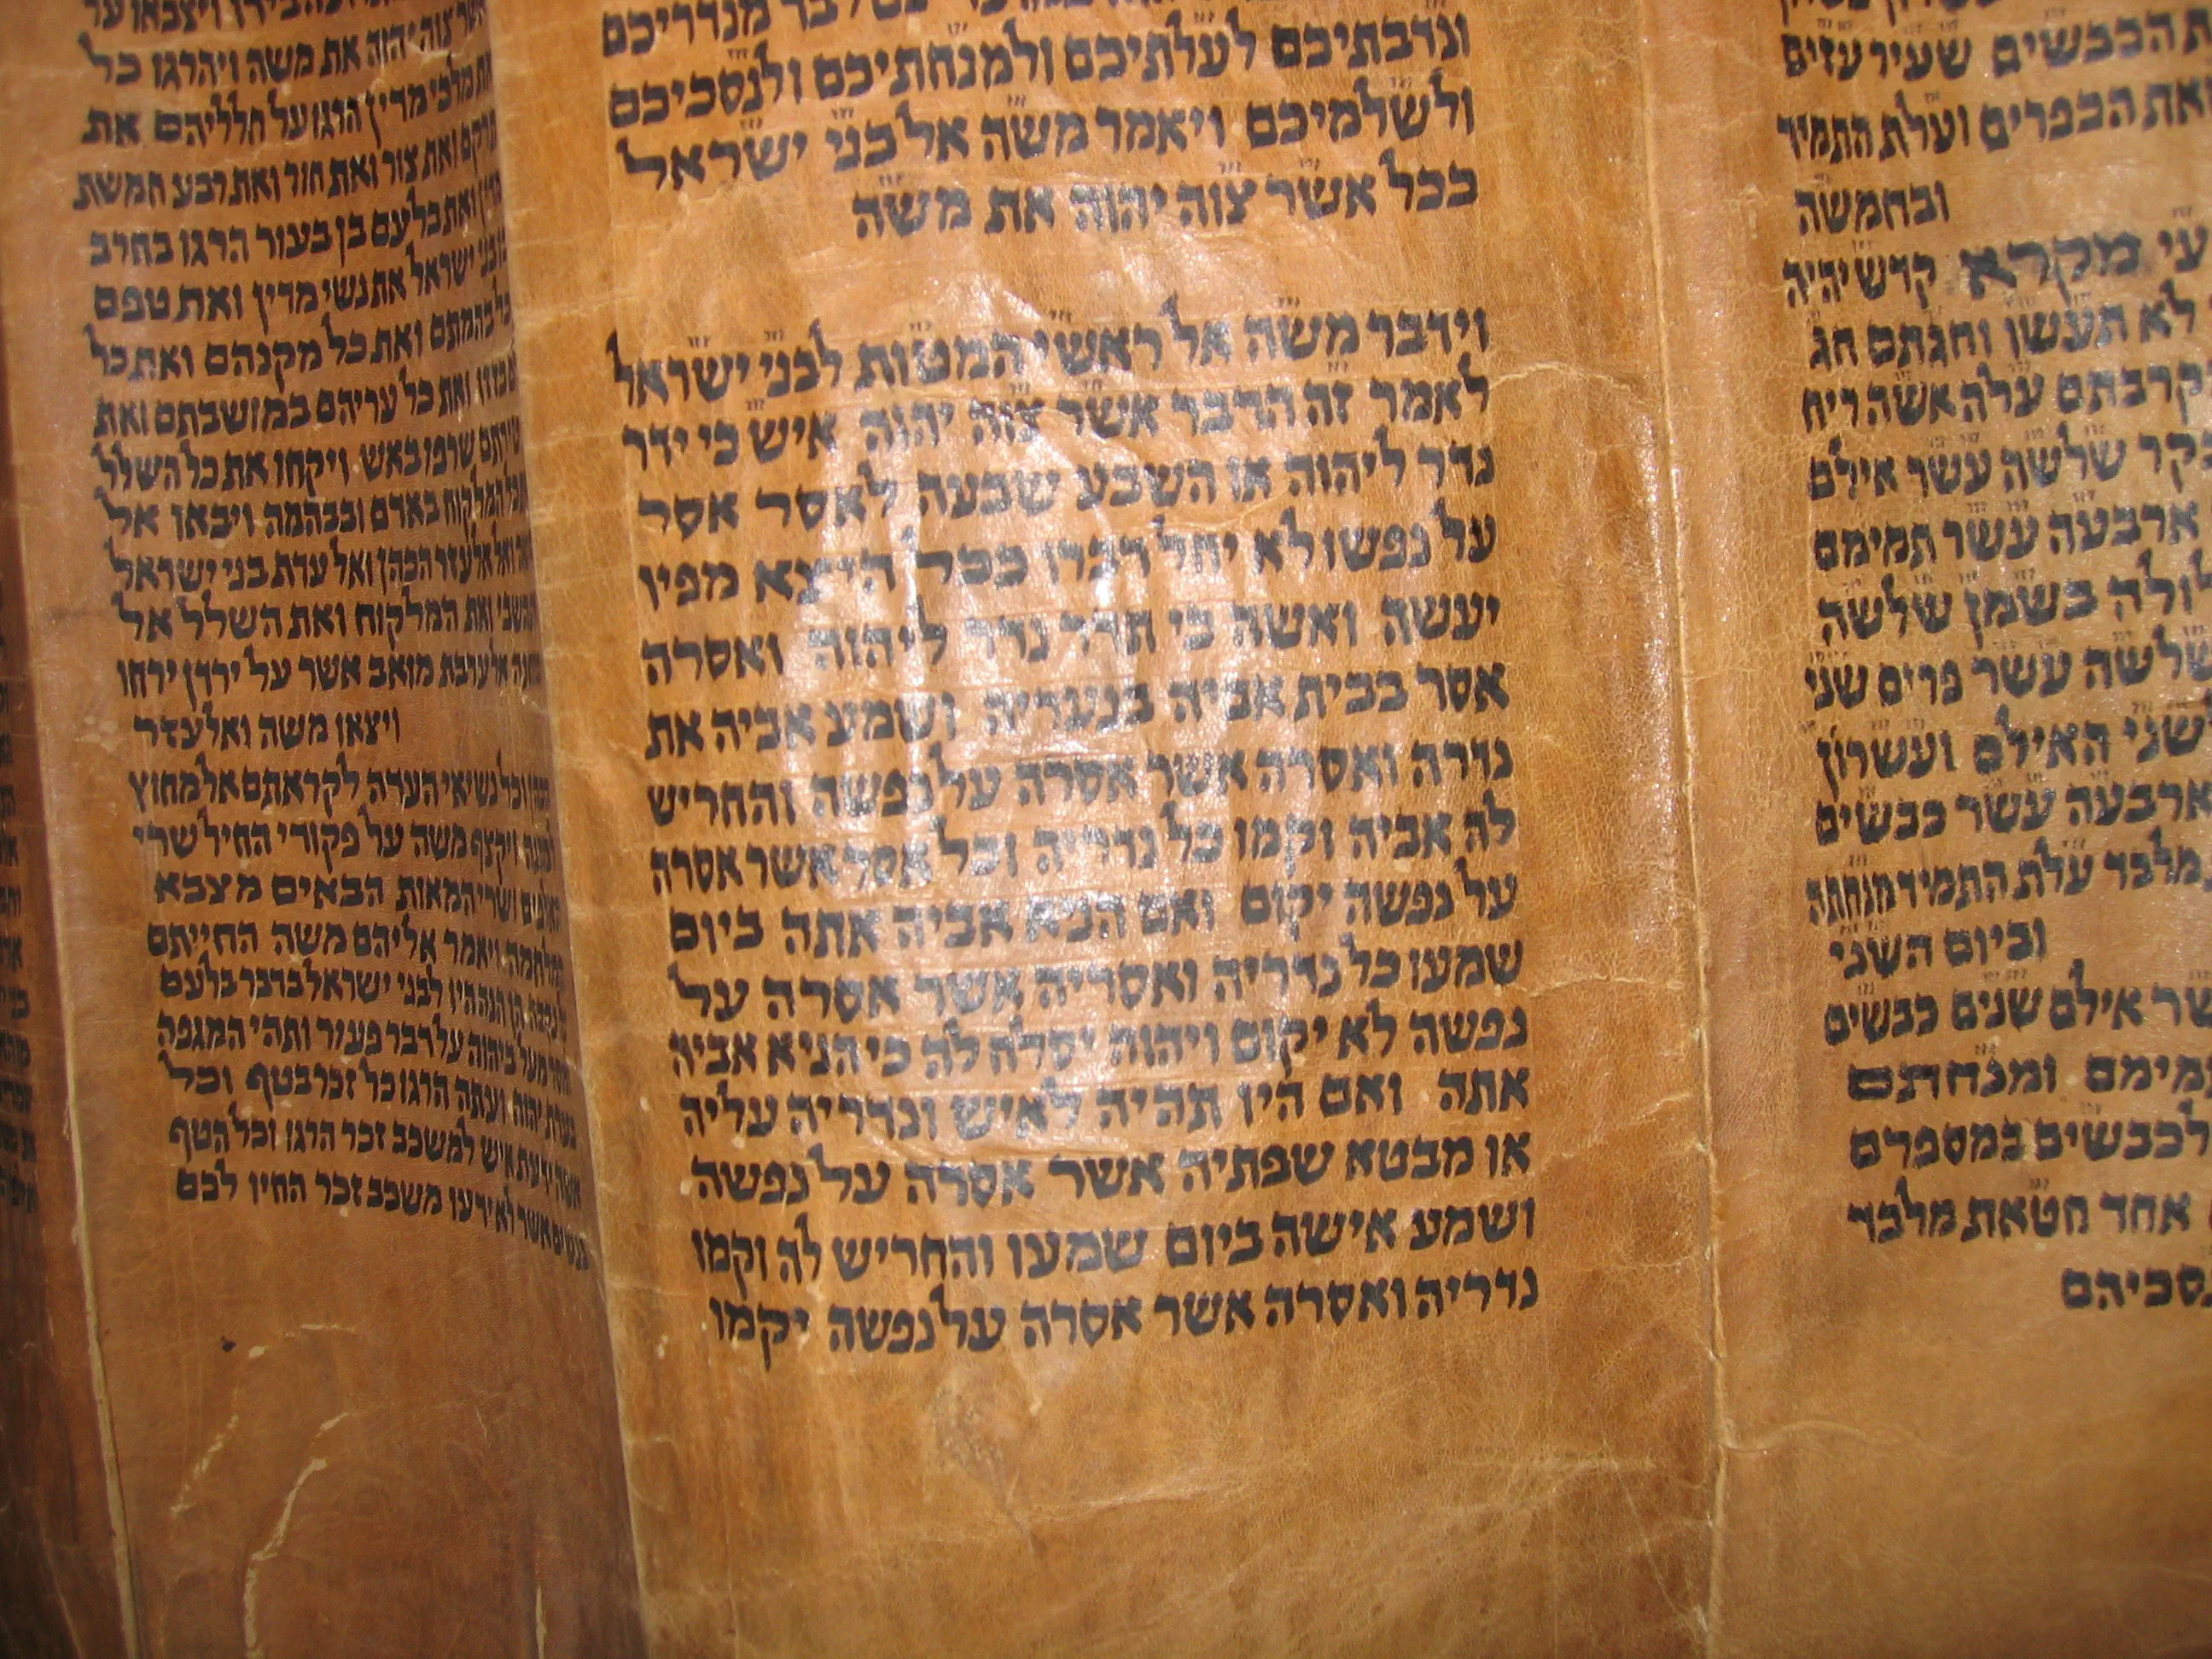 הכבשים שעיר עזים
את הכפרים ועלת התמיד
ובחמשה
מקרא קדש יהיה
לא תעשו וחגתם חג
עלה אשה ריח
שלשה עשר אילם
ארבעה עשר תמימם
בשמן שלשה
שלשה עשר פרים שני
שני האילם ועשרון
ארבעה עשר כבשים
מלבד עלת התמיד מנחתה
וביום השני
אילם שנים כבשים
ומנחתם
לכבשים במספרם
אחד חטאת מלבד
נסכיהם
מנדריכם
ונדבתיכם לעלתיכם ולמנחתיכם ולנסכיכם
ולשלמיכם ויאמר משה אל בני ישראל
ככל אשר צוה יהוה את משה
וידבר משה אל ראשי המטות לבני ישראל
לאמר זה הדבר אשר צוה יהוה איש כי ידר
נדר ליהוה או השבע שבעה לאסר אסר
על נפשו לא יחל דברו ככל היצא מפיו
יעשה ואשה כי תדר נדר ליהוה ואסרה
אסר בבית אביה בנעריה ושמע אביה את
נדרה ואסרה אשר אסרה על נפשה והחריש
לה אביה וקמו כל נדריה וכל אסר אשר אסרה
על נפשה יקום ואם הניא אביה אתה ביום
שמעו כל נדריה ואסריה אשר אסרה על
נפשה לא יקום ויהוה יסלח לה כי הניא אביה
אתה ואם היו תהיה לאיש ונדריה עליה
או מבטא שפתיה אשר אסרה על נפשה
ושמע אישה ביום שמעו והחריש לה וקמו
נדריה ואסרה אשר אסרה על נפשה יקמו
צוה יהוה את משה ויהרגו כל
מלכי מדין הרגו על חלליהם את
ואת צור ואת חור ואת רבע חמשת
ואת בלעם בן בעור הרגו בחרב
בני ישראל את נשי מדין ואת טפם
בהמתם ואת כל מקנהם ואת כל
בזזו ואת כל עריהם במושבתם ואת
שרפו באש ויקחו את כל השלל
המלקוח באדם ובבהמה ויבאו אל
ואל אלעזר הכהן ואל עדת בני ישראל
ואת המלקוח ואת השלל אל
אל ערבת מואב אשר על ירדן ירחו
ויצאו משה ואלעזר
וכל נשיאי העדה לקראתם אל מחוץ
ויקצף משה על פקודי החיל שרי
ושרי המאות הבאים מצבא
ויאמר אליהם משה החייתם
הן הנה היו לבני ישראל בדבר בלעם
מעל ביהוה על דבר פעור ותהי המגפה
יהוה ועתה הרגו כל זכר בטף וכל
איש למשכב זכר הרגו וכל הטף
אשר לא ידעו משכב זכר החיו לכם